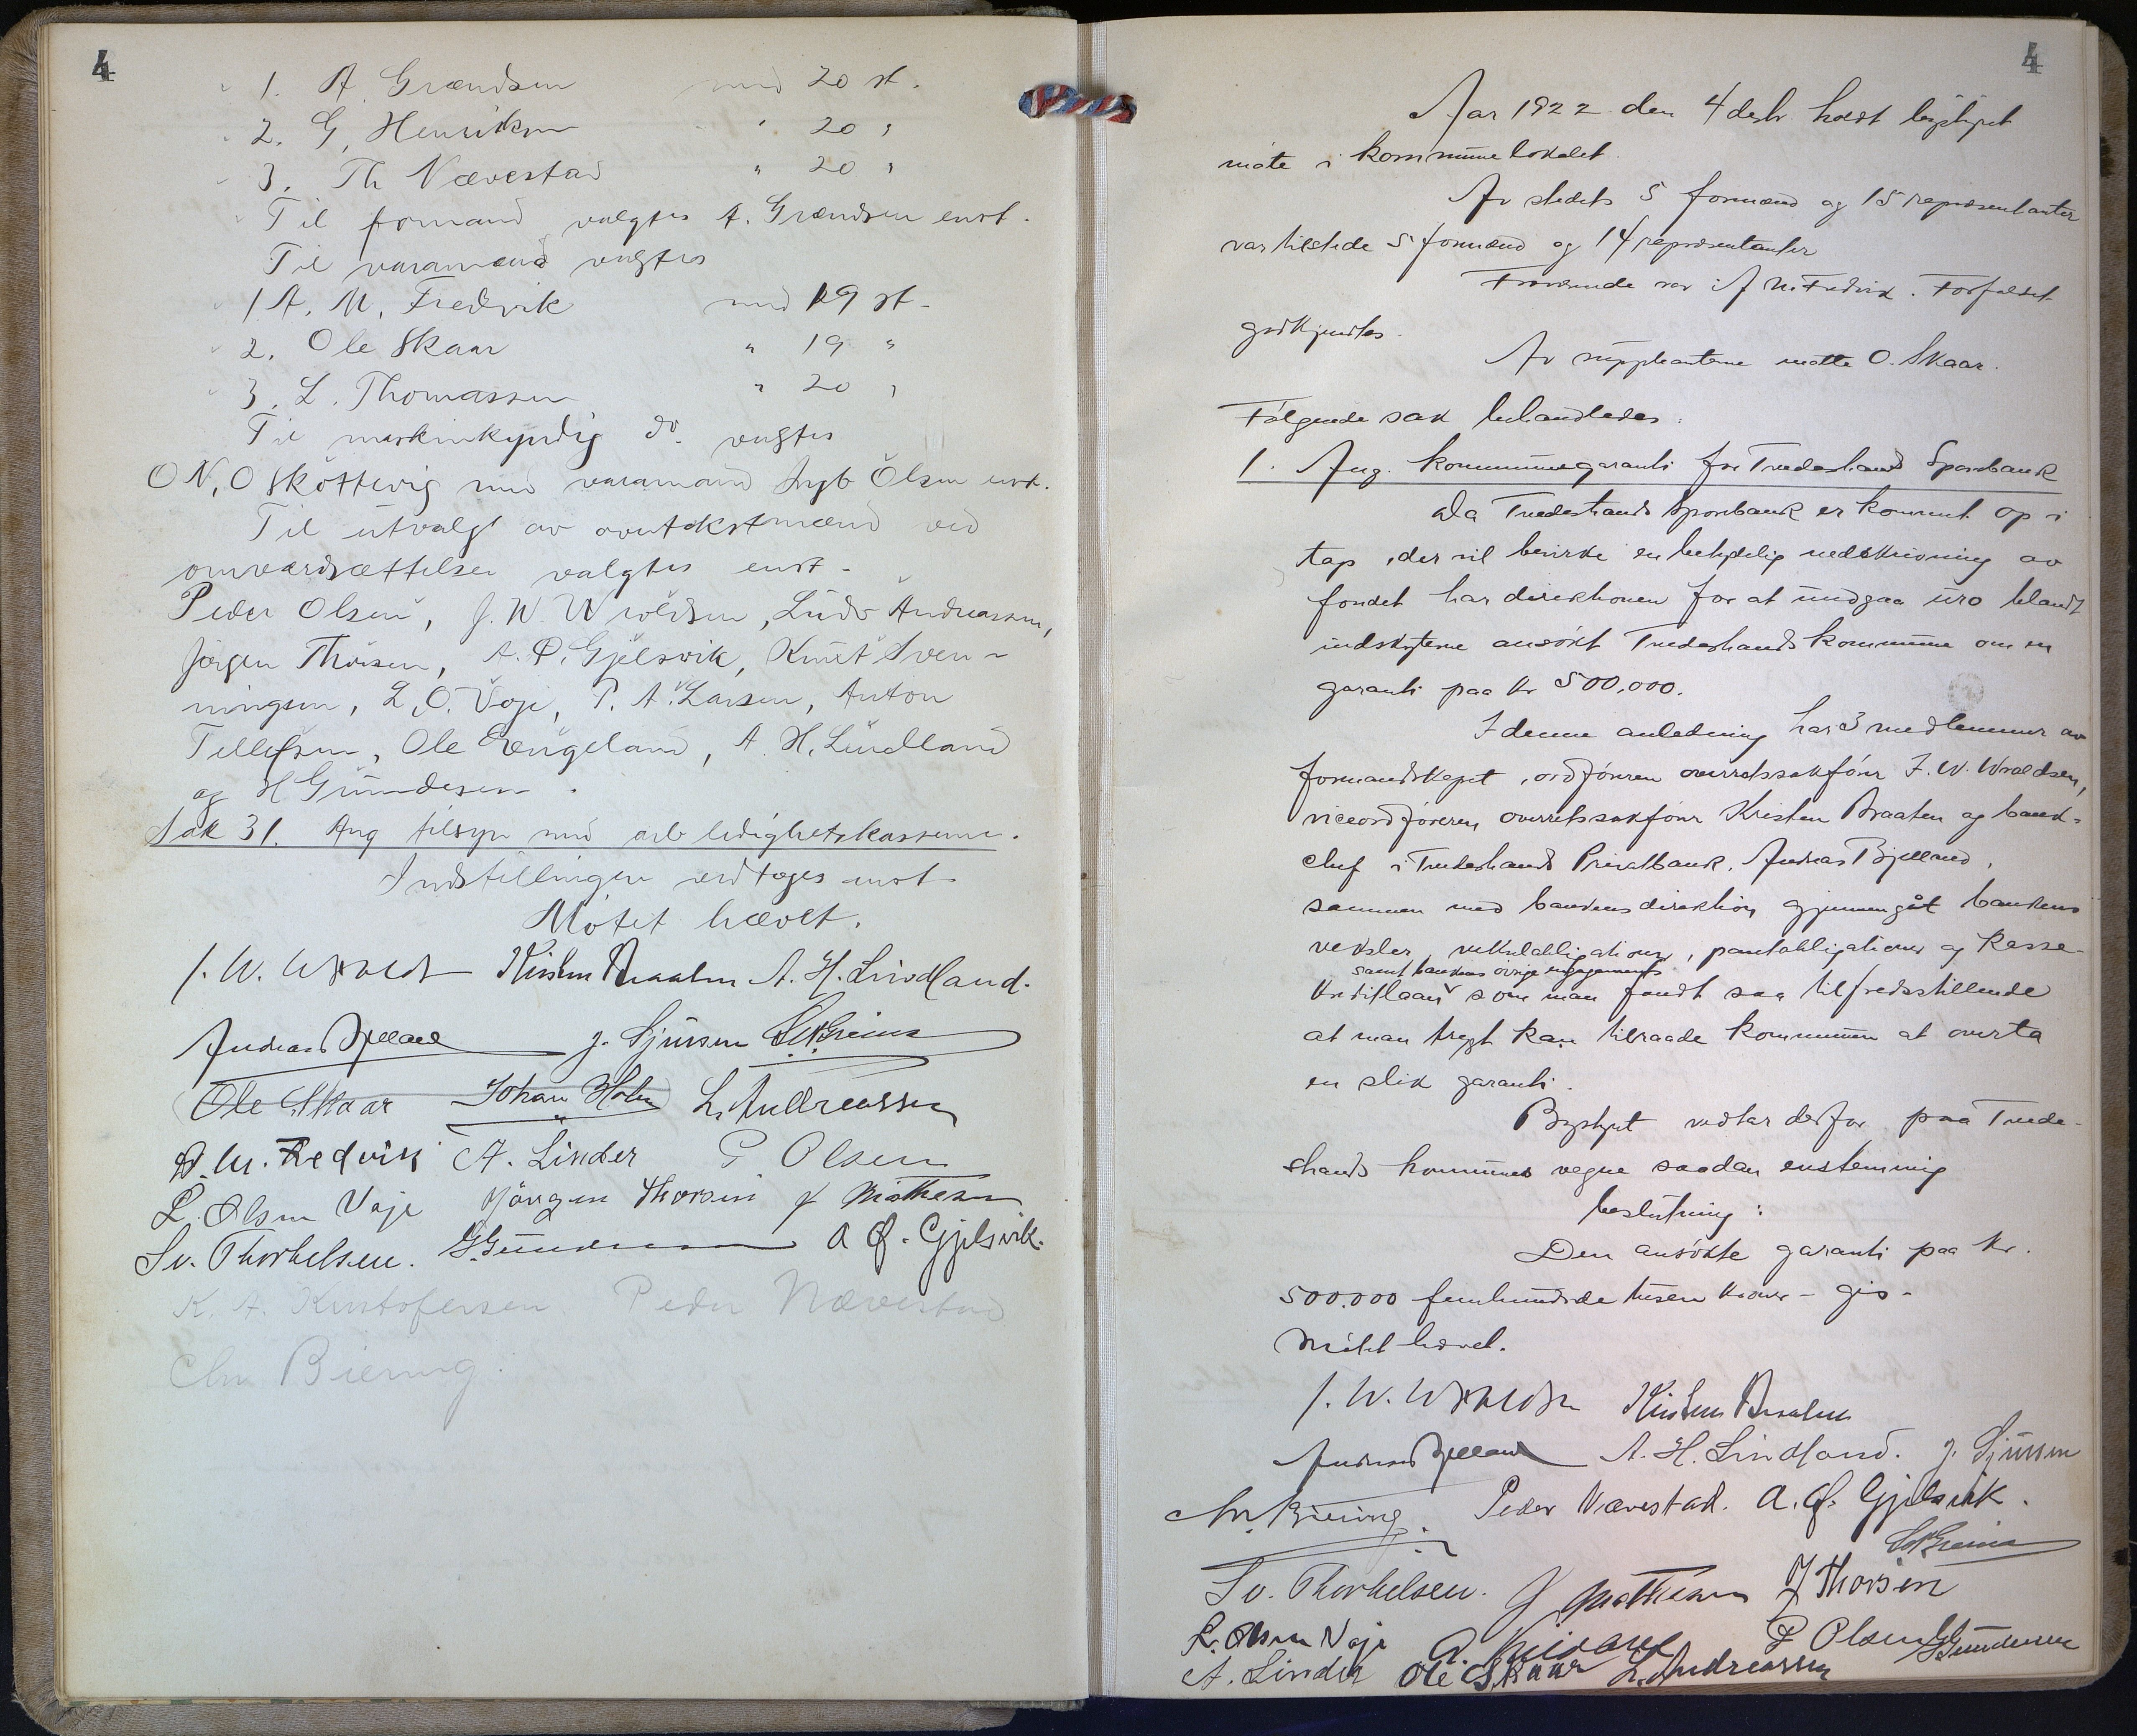 4
1. A. Grændsen med 20 st.
2. G. Henriksen " 20 "
3. Th Nævestad " 20 "
Til formand valgtes A. Grændsen enst.
Til varamænd valgtes
1 A. M. Fredvik med 19 st.
2. Ole Skaar " 19 "
3. L. Thomassen " 20 "
Til maskinkyndig do. valgtes
O. N. O Sköttevig med varamand Olsen enst.
Til utvalg av mænd ved
omværdsættelser valgtes enst.
Peder Olsen, J. W. Wroldsen, Ludv Andreassen,
Jörgen Thorsen, A. Ø. Gjelsvik, Knut Sven-
ningsen, L. O. Voje, P. A. Larsen, Anton
Tellefsen, Ole Engeland, A. H. Lindland
og H Gundersen.
Sak 31. Ang tilsyn med arb ledighetskassene.
Indstillingen vedtoges enst.
Mötet hævet.
J. W. Wroldsen Kristen Braaten A. H. Lindland.
Andreas Bjelland J. Sjursen
Ole Skaar Johan Holm L. Andreassen
A. M. Fredvik A. Linder P. Olsen
L. Olsen Voje Jörgen Thorsen J Mathesen
Sv. Thorkelsen. G. Gundersen A Ø. Gjelsvik.
K. A. Kristofersen Peder Nævestad
Chr Biering.
4
Aar 1922 den 4 desbr. holdt bystyret
möte i kommunelokalet.
Av stedets 5 formænd og 15 repræsentanter
var tilstede 5 formænd og 14 repræsentanter
Fraværende var A M. Fredvik. Forfaldet
godkjendtes.
Av suppleantene mötte O. Skaar.
Fölgende sak behandledes:
1. Ang. kommunegaranti for Tvedestrand Sparebank
Da Tvedestrands Sparebank er kommet op i
tap, der vil bevirke en betydelig nedskrivning av
fondet har direktionen for at undgaa uro blandt
indskyterne ansökt Tvedestrands kommune om en
garanti paa kr 500,000.
I denne anledning har 3 medlemmer av
formandskapet, ordföreren overretssakförer J. W. Wroldsen,
viceordföreren overretssakförer Kristen Braaten og bank-
chef i Tvedestrands Privatbank, Andreas Bjelland,
sammen med bankens direktion gjennemgåt bankens
veksler, vekselobligationer, pantobligationer og kasse-
samt bankens övrige engagements
kreditlaan som man fandt saa tilfredsstillende
at man trygt kan tilraade kommunen at overta
en slik garanti.
Bystyret vedtar derfor paa Tvede-
strands kommunes vegne saadan enstemmig
beslutning:
Den ansökte garanti paa kr.
500.000 femhundrede tusen kroner - gis.
Mötet hævet.
J. W. Wroldsen Kristen Braaten
Andreas Bjelland A. H. Lindland. J. Sjursen
Chr. Biering. Peder Nævestad. A. Ø. Gjelsvik.
Sv. Thorkelsen. J Mathesen J Thorsen
L. Olsen Voje P Olsen G Gundersen
A. Linder Ole Skaar L. Andreassen